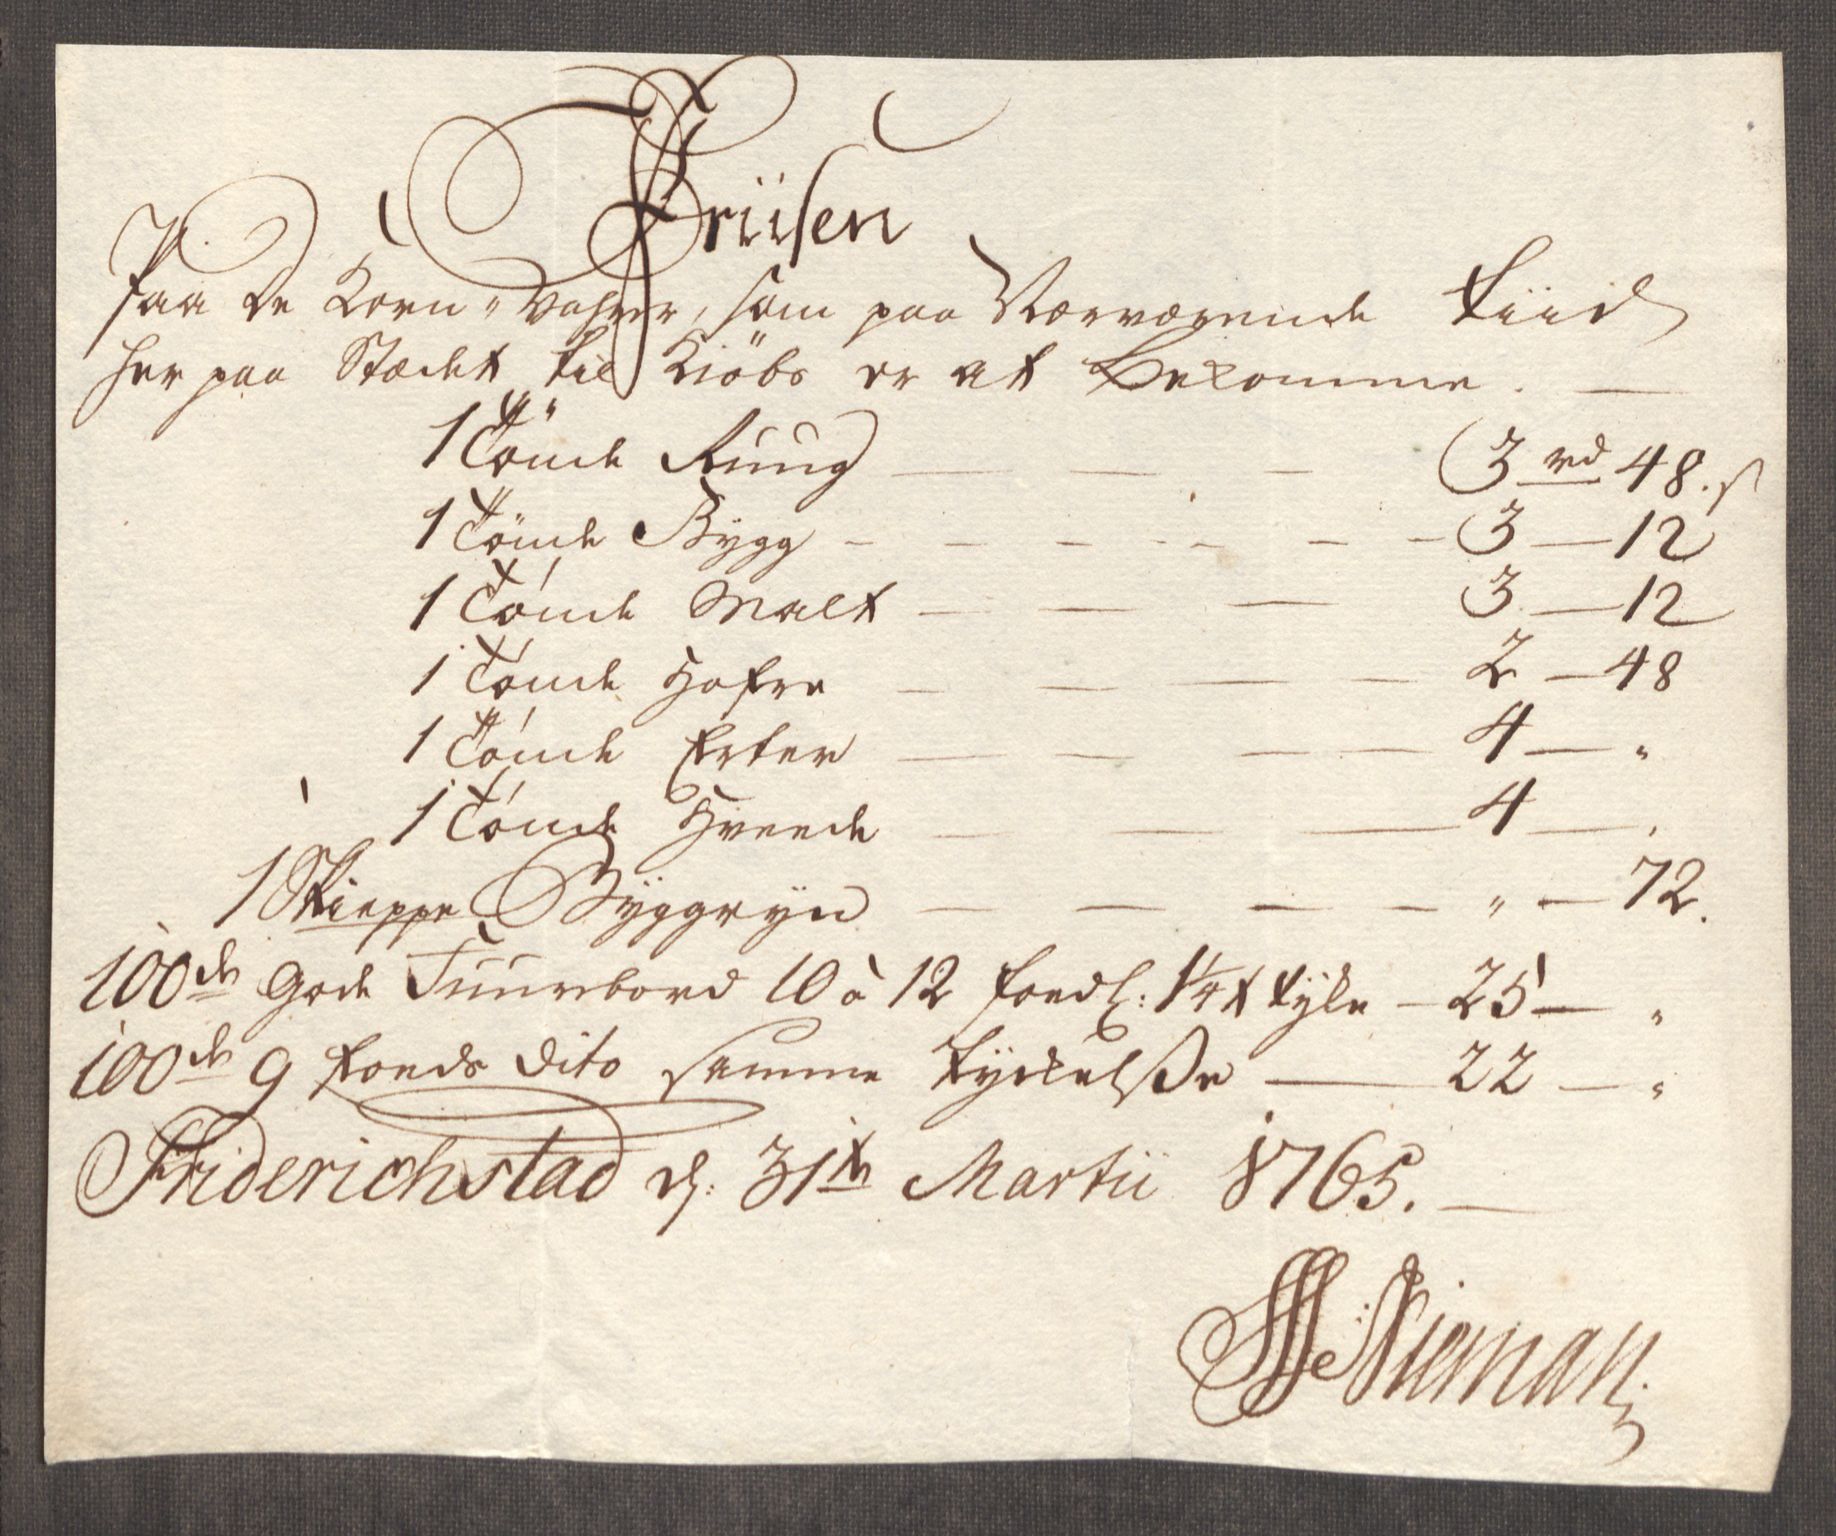 Priisen
Paa De Korn-Vahrer, som paa Nærværende Tiid
her paa Stædet til Kiöbs er at bekomme. —
1 Tönde Ruug — — — 3 rd 48 s
1 Tönde Bygg — — — 3 — 12
1 Tönde Malt — — — 3 — 12
1 Tönde Hafre — — — 2 — 48
1 Tönde Erter — — — 4 — "
1 Tönde Hveede — — — 4 — "
1 Skieppe Byggryn — — — " — 72.
100de gode Fuurbord 10 à 12 foed l: 1¼ t tyke — 25 — "
100de 9 foeds dito samme tyckelsse — 22 — "
Friderichstad d: 31te Martii 1765. —
Nieman